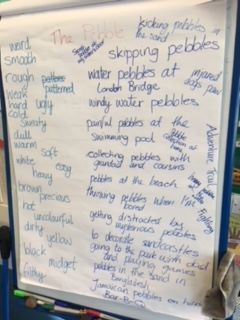 The Pebble
kicking pebbles in the sand
weird
smooth
rough
weak patterned
hard ugly
cold
sweaty
dull
warm
soft
white easy
heavy
brown
precious
hot
uncolourful
dirty yellow
black midget
filthy
skipping pebbles
water pebbles at London Bridge
injured dog's paw
windy water pebbles
painful pebbles at the swimming pool
pebble collection at home
Adventure Trail
collecting pebbles with grandad and cousins
pebbles at the beach
throwing pebbles when I'm bored
Fishing
getting distracted by mysterious pebbles
to decorate sandcastles
going to the park with dad and playing games
pebbles in the sand in Bangladesh
Jamaican pebbles on
Bar-B-Q